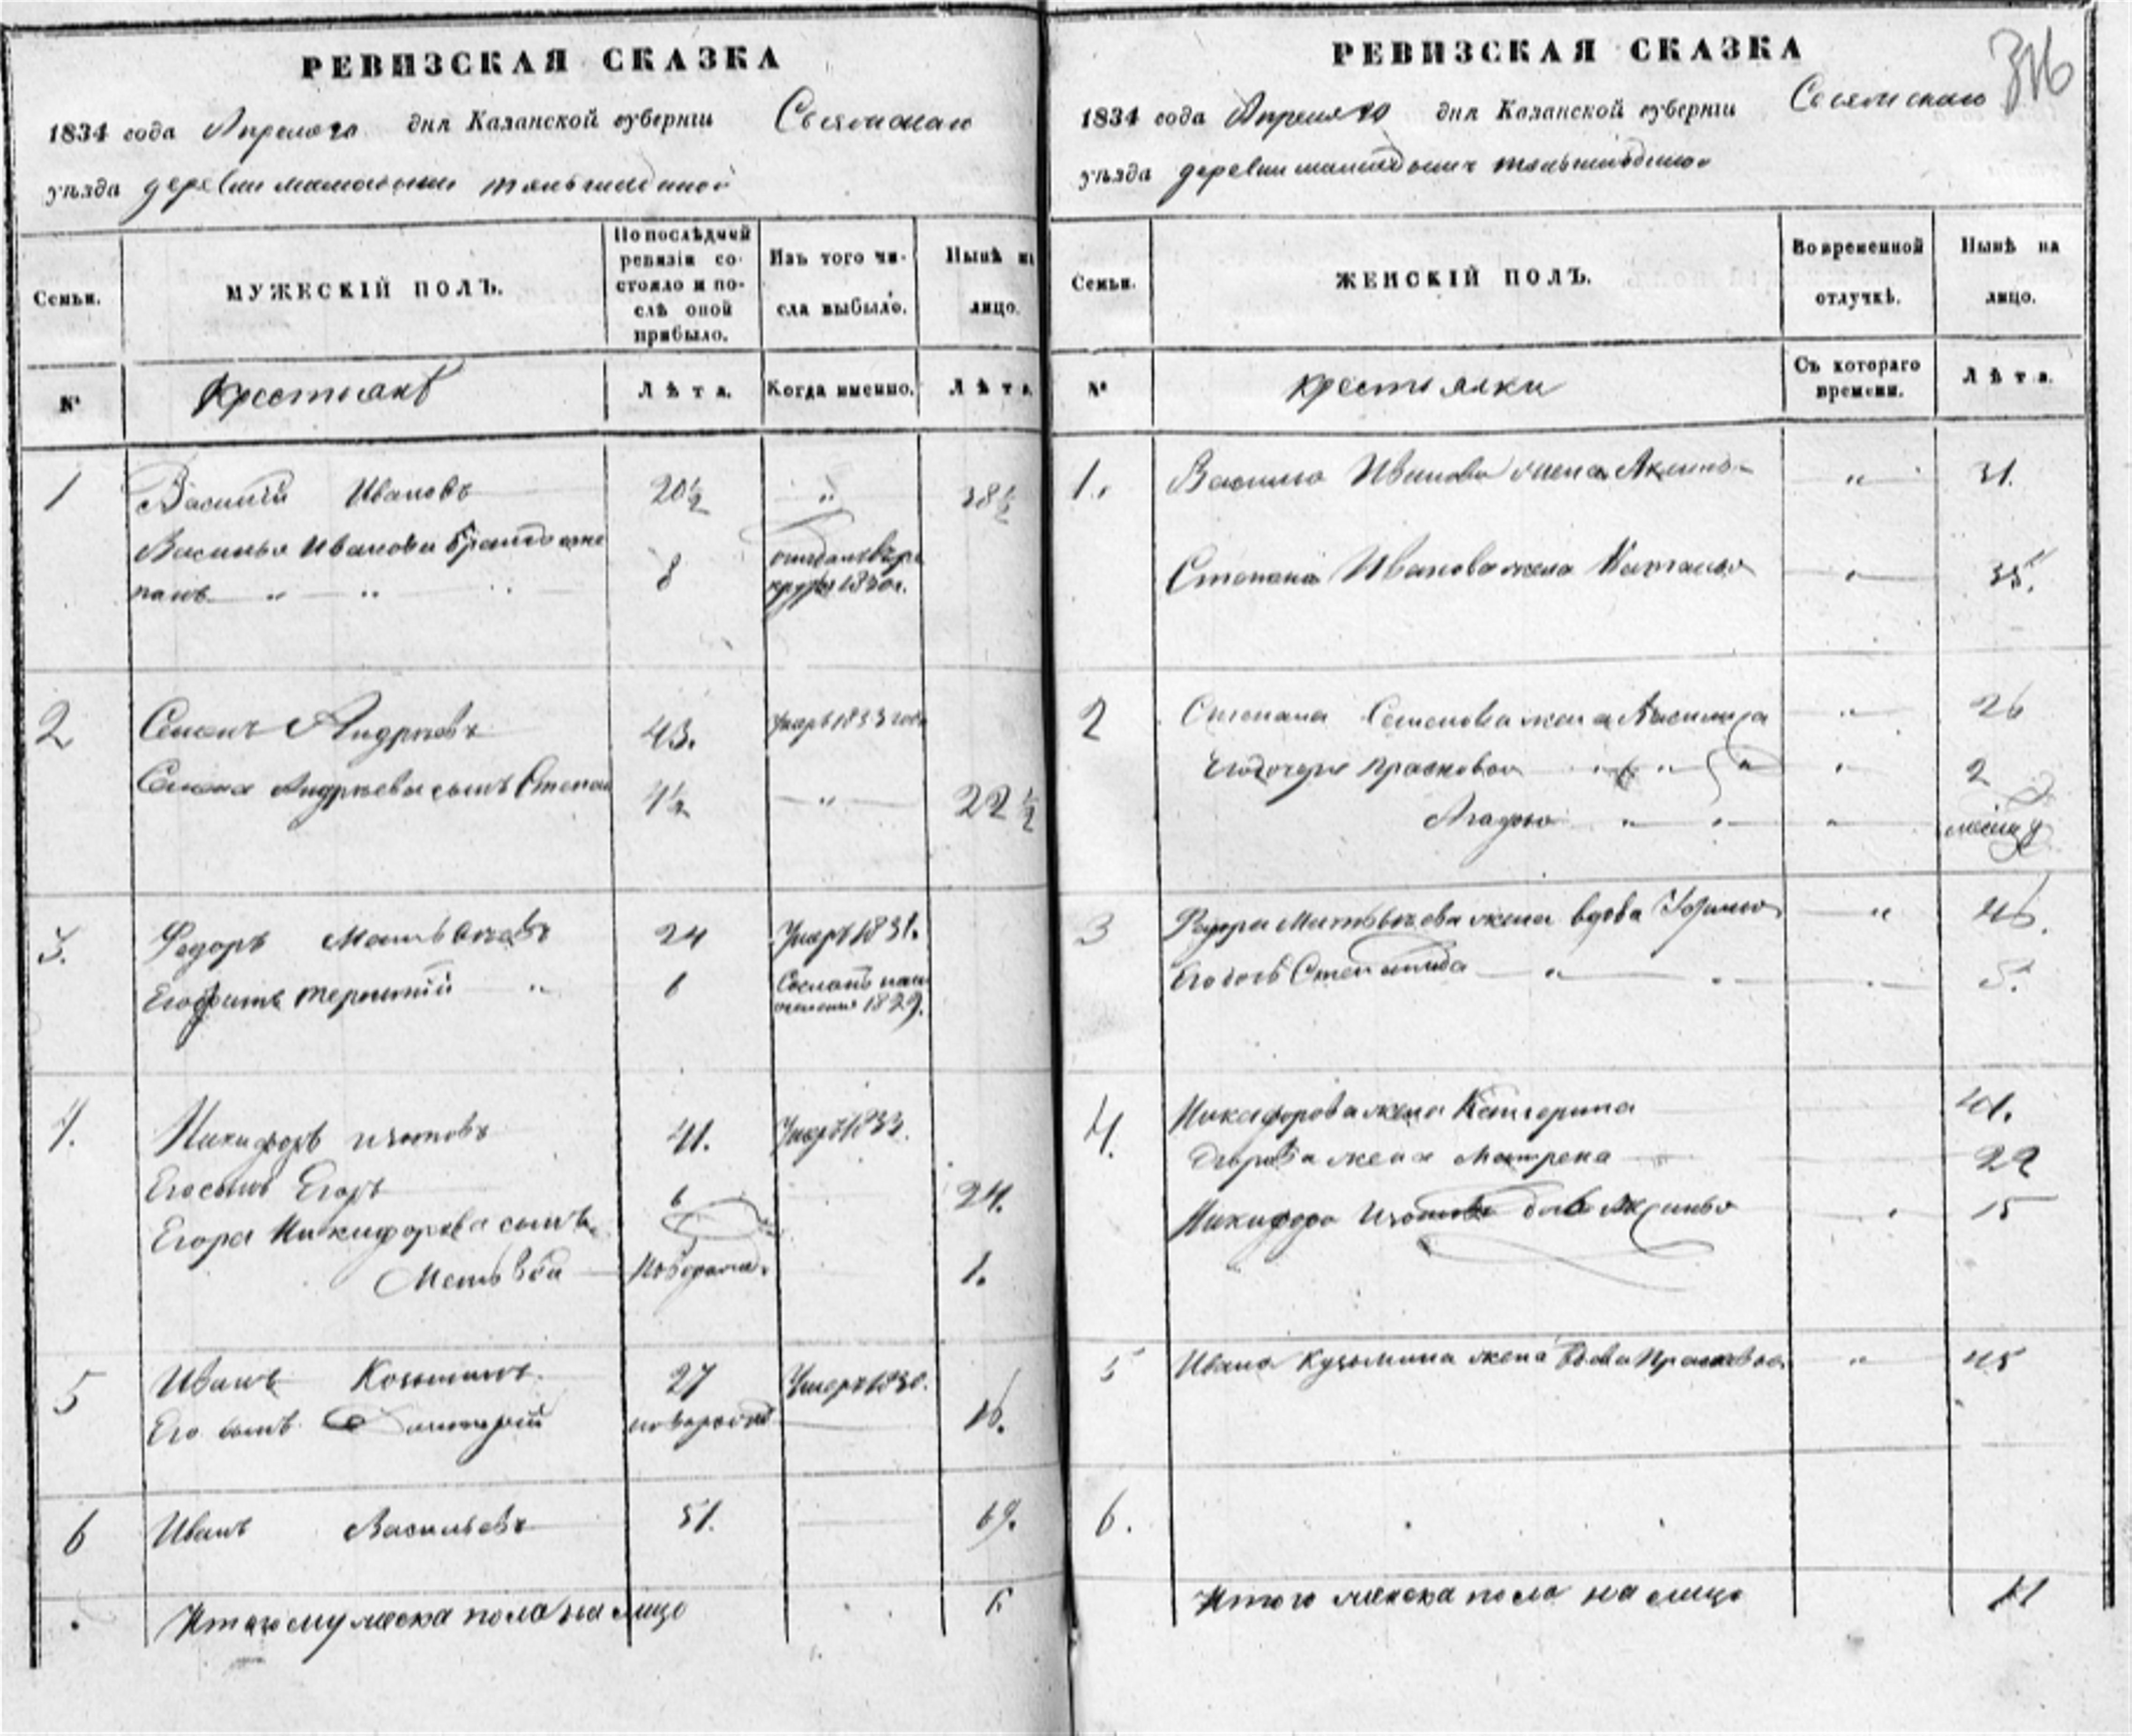 РЕВИЗСКАЯ СКАЗКА
1834 года Апреля дня Казанской губерніи
уѣзда деревни
Семьи.
МУЖЕСКІЙ ПОЛЪ.
По послѣдней ревизіи состояло и послѣ оной прибыло.
Изъ того числа выбыло.
Нынѣ на лицо.
№
Крестьянѣ
Лѣта.
Когда именно.
Лѣта
1 Василий Ивановъ 20½ " 38½
Василья Иванова братъ Сте
панъ " " 8 отданъ въ ре
круты 1830.
2 Семенъ Андреевъ 43. Умеръ 1833 года
Семена Андреева сынъ Степан 4½ " 22½
3. Федоръ Матвѣевъ 24 Умеръ 1831.
Его терентий " 6 Сосланъ 1829.
4. Никифоръ изотовъ 41. Умеръ 1833.
Его сынъ Егоръ 6 24.
Егора Никифорова сынъ
Матвѣй Новорож. 1.
5 Иванъ Козминъ 27 Умеръ 1830.
Его сынъ Дмитрей новорожд 16.
6 Иванъ Васильевъ 51. 69.
Итого мужеска пола на лицо 6
РЕВИЗСКАЯ СКАЗКА
316
1834 года Апреля дня Казанской губерніи
уѣзда деревни
Семьи.
ЖЕНСКІЙ ПОЛЪ.
Во временной отлучкѣ.
Нынѣ на лицо.
№
крестьянки
Съ котораго времени.
Лѣта.
1. Василья Иванова жена " 31.
Степана Иванова жена Наталья " 35.
2 Степана Семенова жена Василиса " 26
Его дочери прасковья " " " 2
Агафья " " " месяц
3 Федора Матвѣева жена вдова " 46.
Его дочь Степанида " 5.
4. Никифорова жена Катерина 41.
Егорова жена Матрена 22
Никифора Изотова дочь Аксинья 15
5 Ивана Кузьмина жена вдова Прасковья " 45
6.
Итого женска пола на лицо 11